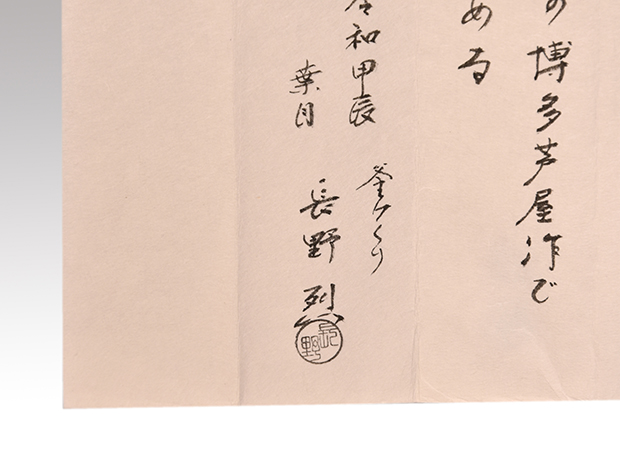 の博多芦屋作で
める
令和甲辰
葉月
釜つくり
長野 烈
長野